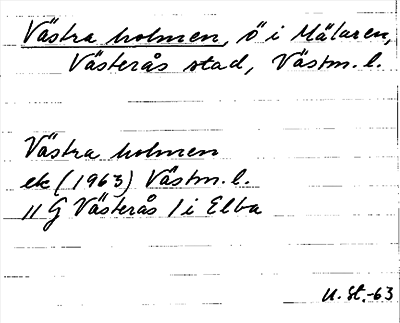 Västra holmen, ö i Mälaren,
Västerås stad, Västm. l.
Västra holmen
ek (1963) Västm. l.
11 G Västerås / i Elba
U. St. -63